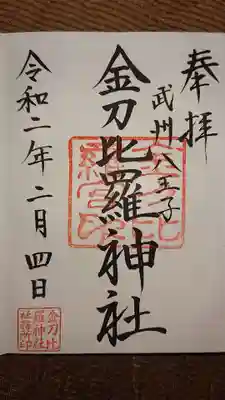 奉拝
武州八王子
金刀比羅神社
令和二年二月四日
金刀比
羅神社
社務所印